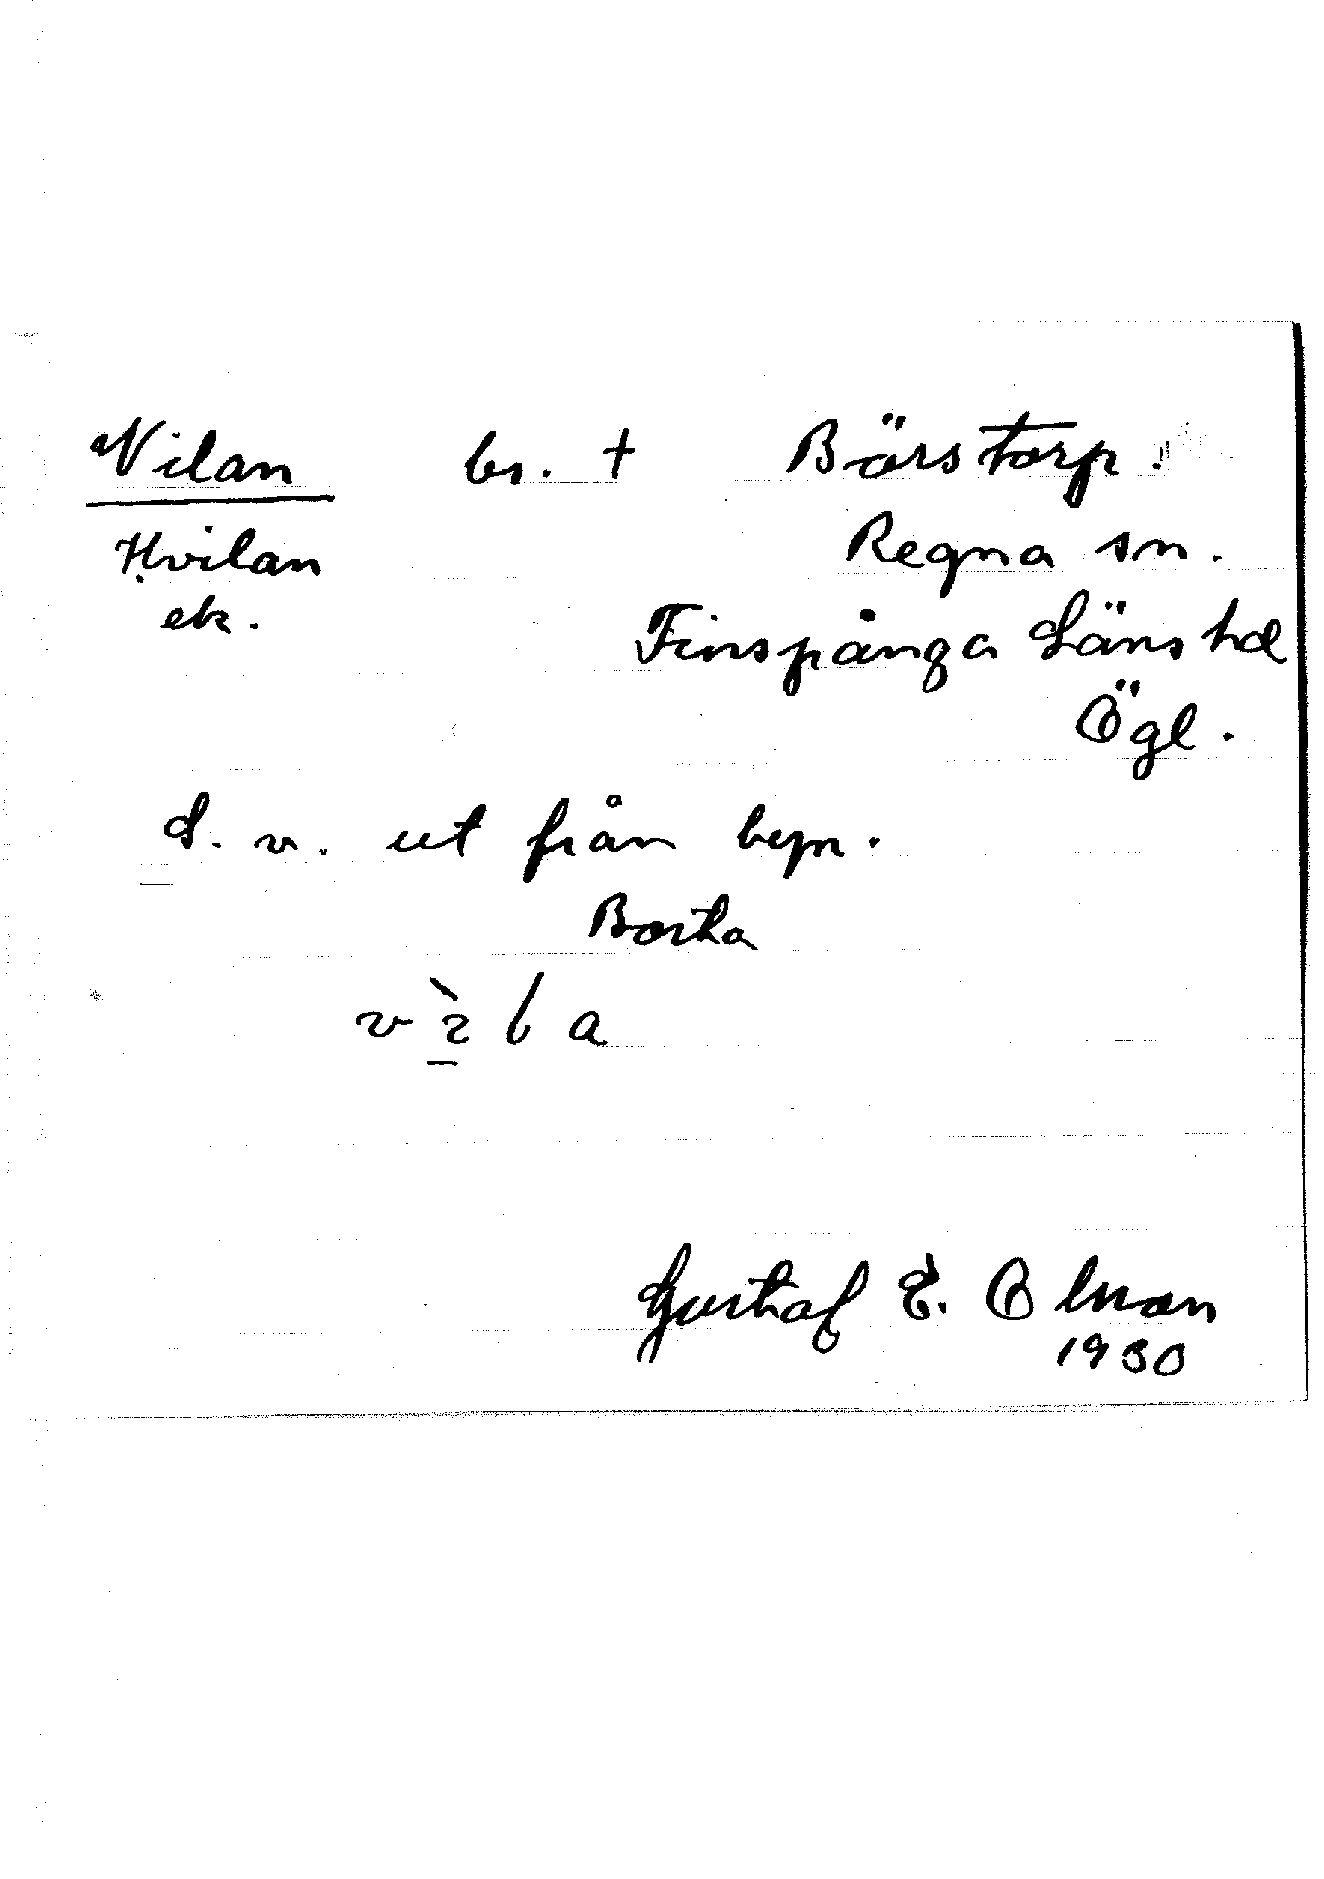 Vilan bs. † Börstorp.
Hvilan Regna sn.
ek. Finspånga Läns hd
Ögl.
S. v. ut från byn.
Borta
Gustaf E. Olman
1930